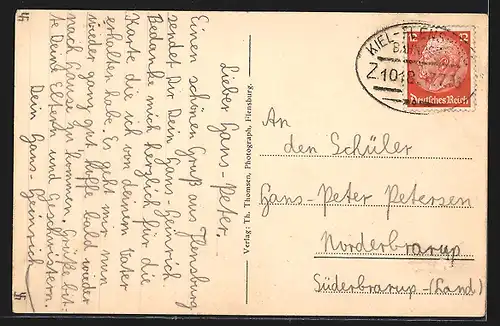 Lieber Hans-Peter.
Einen schönen Gruß aus Flensburg
sendet Dir Dein Hans-Heinrich.
Bedanke mich herzlich für die
Karte die ich von deinem Vater
erhalten habe. Es geht mir nun
wieder ganz gut hoffe bald wieder
nach Hause zu kommen. Grüße bit-
te Deine Eltern und Geschwistern.
Dein Hans-Heinrich
Verlag: Th. Thomsen, Photograph, Flensburg.
KIEL-FLENSB
BAHNPOST
Z.1012
12 12
Deutsches Reich
An
den Schüler
Hans-Peter Petersen
Norderbrarup
Süderbrarup-(Land)